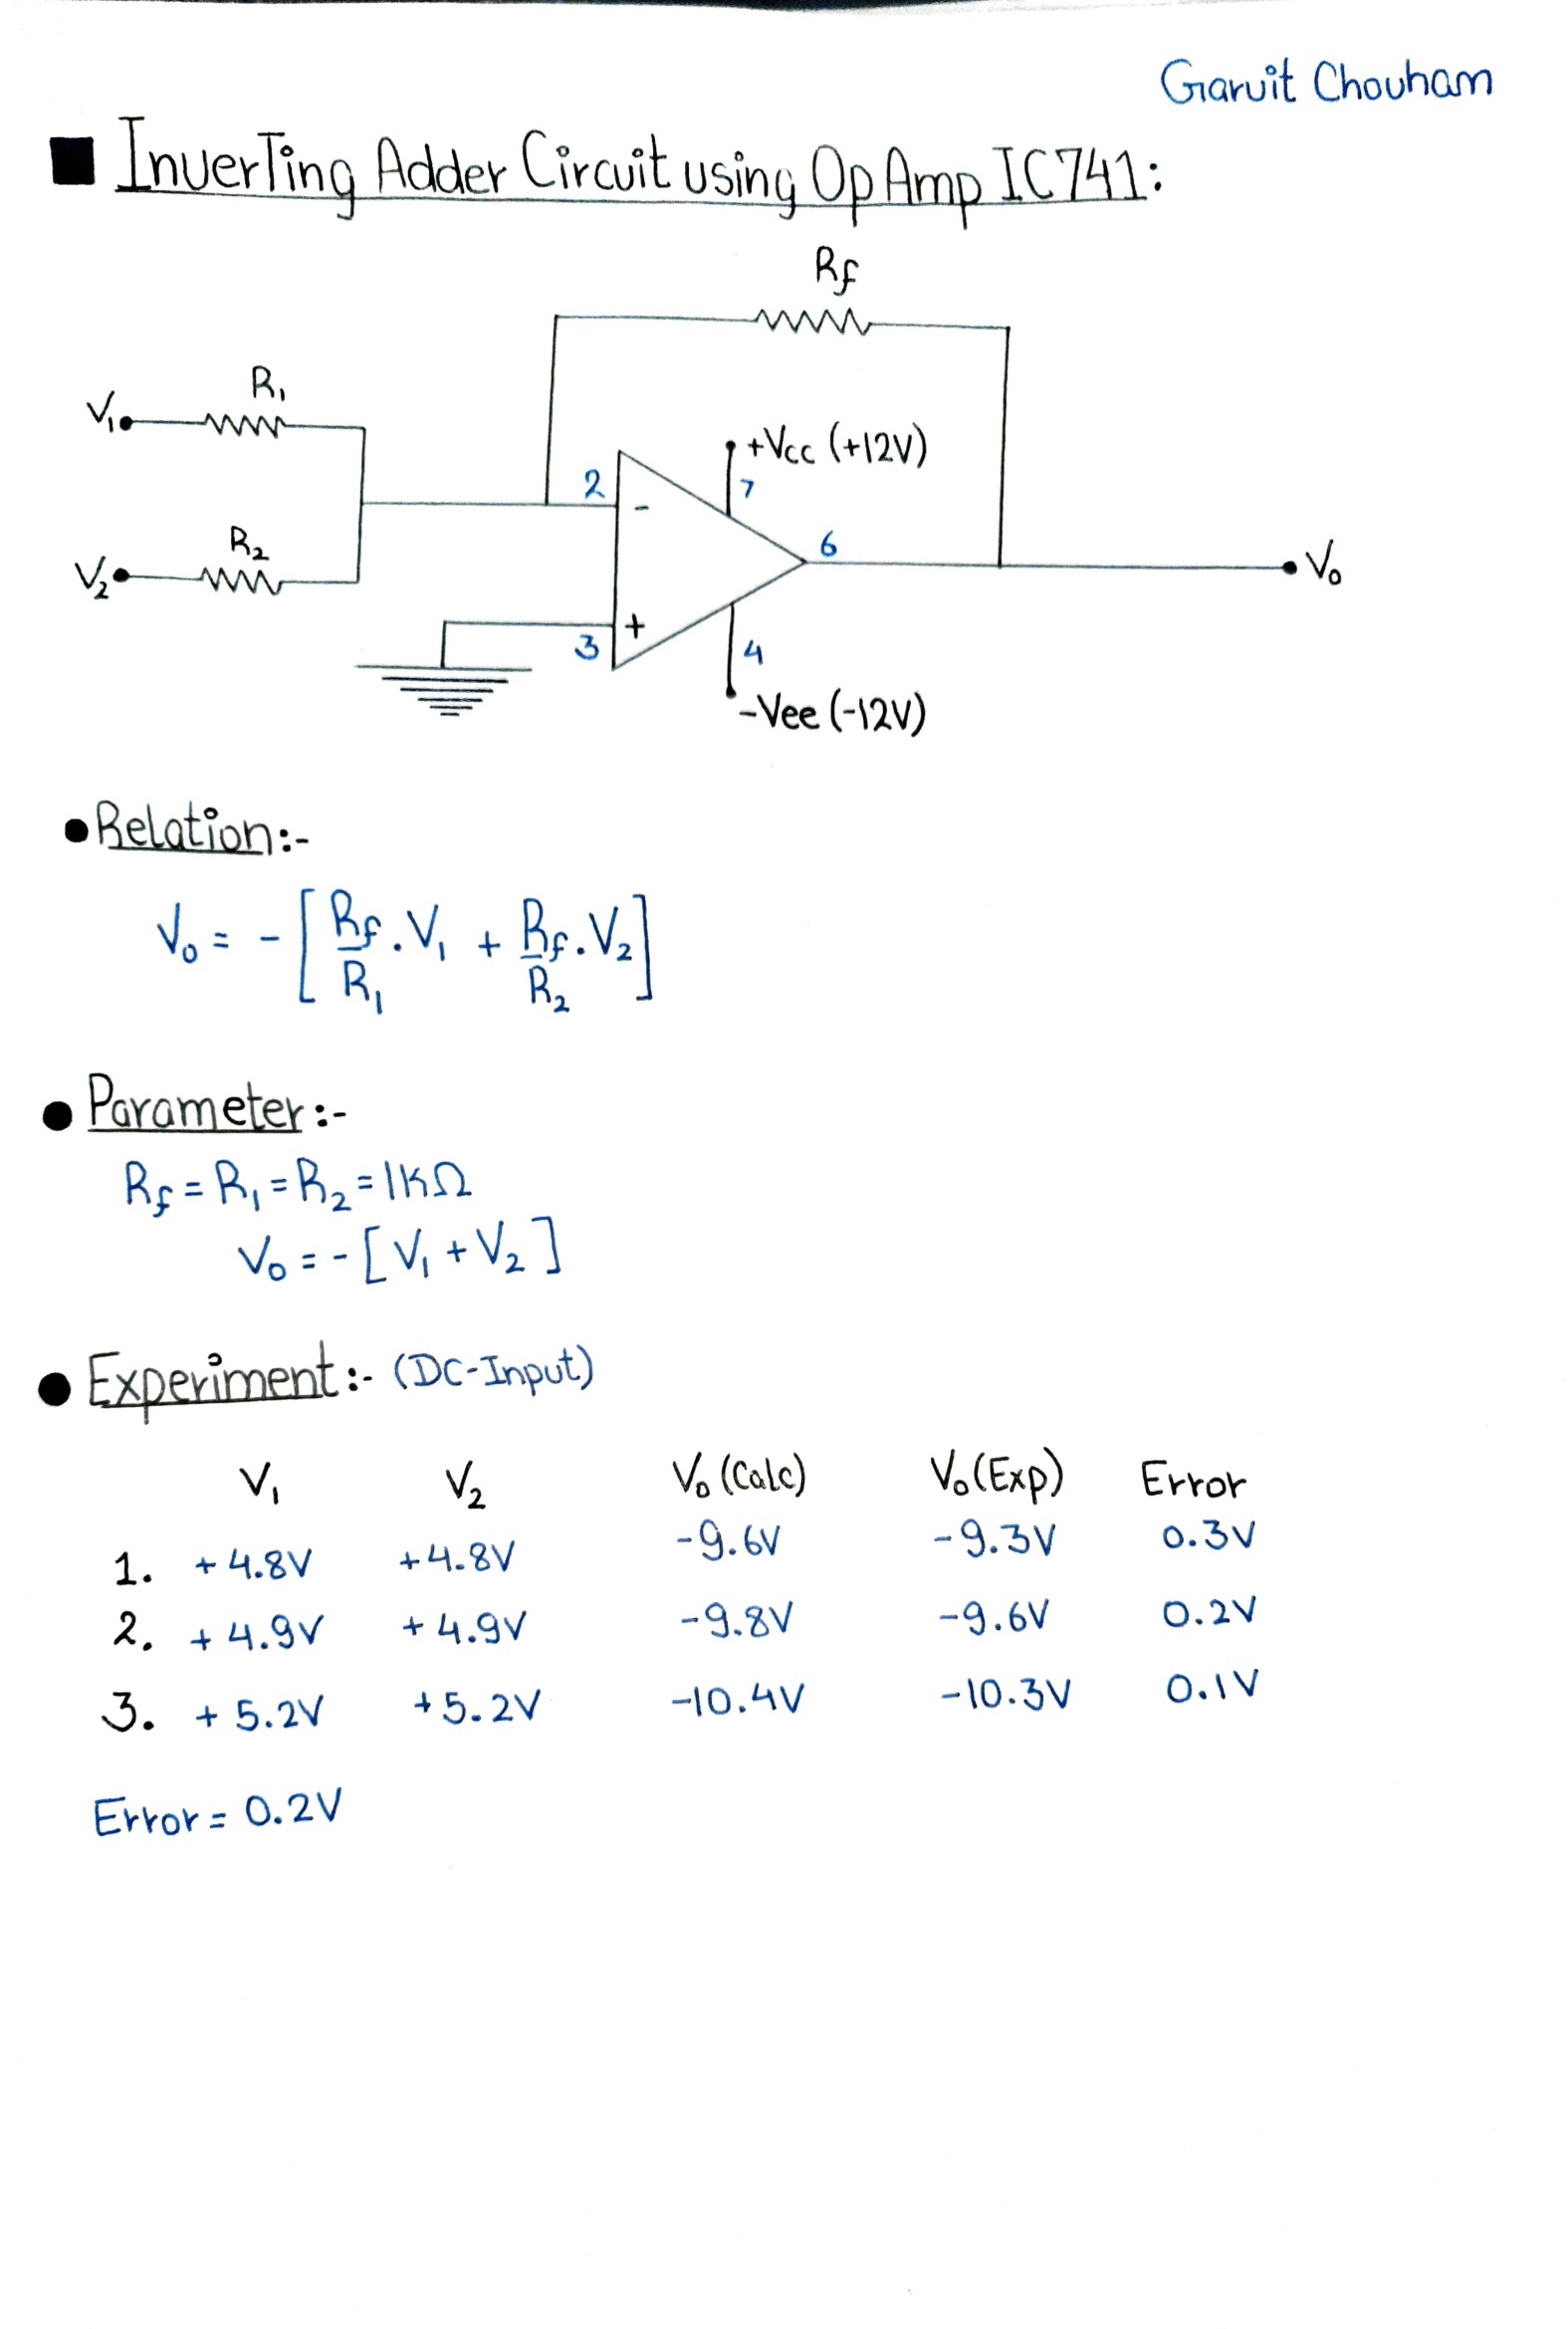 Garuit Chouham
Inverting Adder Circuit using Op Amp IC741:
Rf
R1
V1
+Vcc (+12V)
2
7
-
R2
6
V2
V0
+
3
4
-Vee (-12V)
Relation:-
V0 = - [Rf/R1 . V1 + Rf/R2 . V2]
Parameter:-
Rf = R1 = R2 = 1KΩ
V0 = - [V1 + V2]
Experiment:- (DC-Input)
V1 V2 V0 (Calc) V0 (Exp) Error
1. +4.8V +4.8V -9.6V -9.3V 0.3V
2. +4.9V +4.9V -9.8V -9.6V 0.2V
3. +5.2V +5.2V -10.4V -10.3V 0.1V
Error = 0.2V